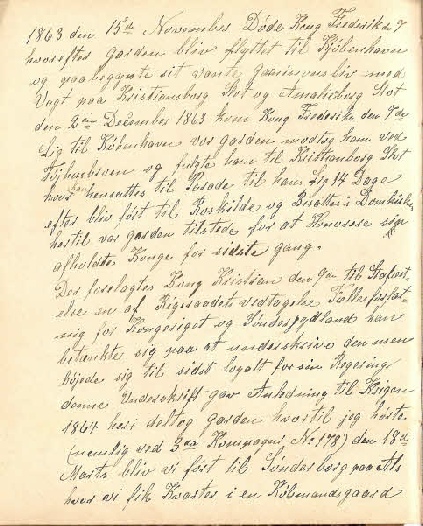 1863 den 15de November Døde Kong Frederik d. 7
hvorefter garden blev flyttet til Kjøbenhavn
og paabegyndte sit vante garnisonsliv med
Vagt paa Kristiansborg Slot og Amalieborg Slot
den 2den December 1863 kom Kong Frederik den 7de
Lig til København vor garden modtog ham ved
og fulgte ham til Kristianborg Slot
hvor han hensattes til Parade til hans Lig 14 Dage
efter blev ført til Roskilde og Bisattes i Domkirken
hertil var garden tilstede for at Hvorese sin
afholdte Konge for sidste gang.
Der forelagdes Kong Kristian den 9en til Stadfæst
else en af Rigsraadets vedtagelse Fælles forfat-
ning for Kongeriget og Sønderjydland han
betænkte sig paa at underskrive den men
bøjede sig til sidst loyalt for sin Regering
denne Underskrift gav Anledning til Krigen
1864 heri deltog garden hvortil jeg hørte
(nemlig ved 3die Kompagni No 178) den 18de
Marts blev vi ført til Sønderborg paa Als
hvor vi fik Kvarter i en Købmandsgaard